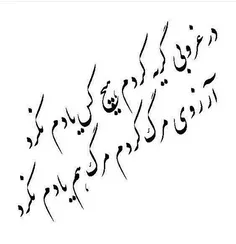 در غروبی گریه کردم هیچ کس یادم نکرد
آرزوی مرگ کردم مرگ هم یادم نکرد